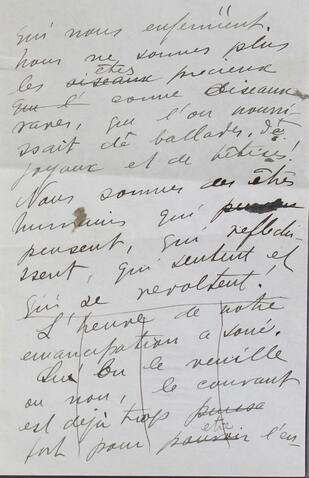 qui nous enferment.
nous ne sommes plus
les oiseaux êtres précieux
que l' comme oiseaux
rares, que l'on nourris
sait de ballades, de
joyaux et de bêtises!
Nous sommes des êtres
humains qui
pensent, qui réfléchis
ssent, qui sentent et
qui se révoltent!
L'heure de notre
émancipation a sonné.
Qu'on le veuille
ou non, le courant
est déjà trop puissa
fort pour pouvoir être l'en